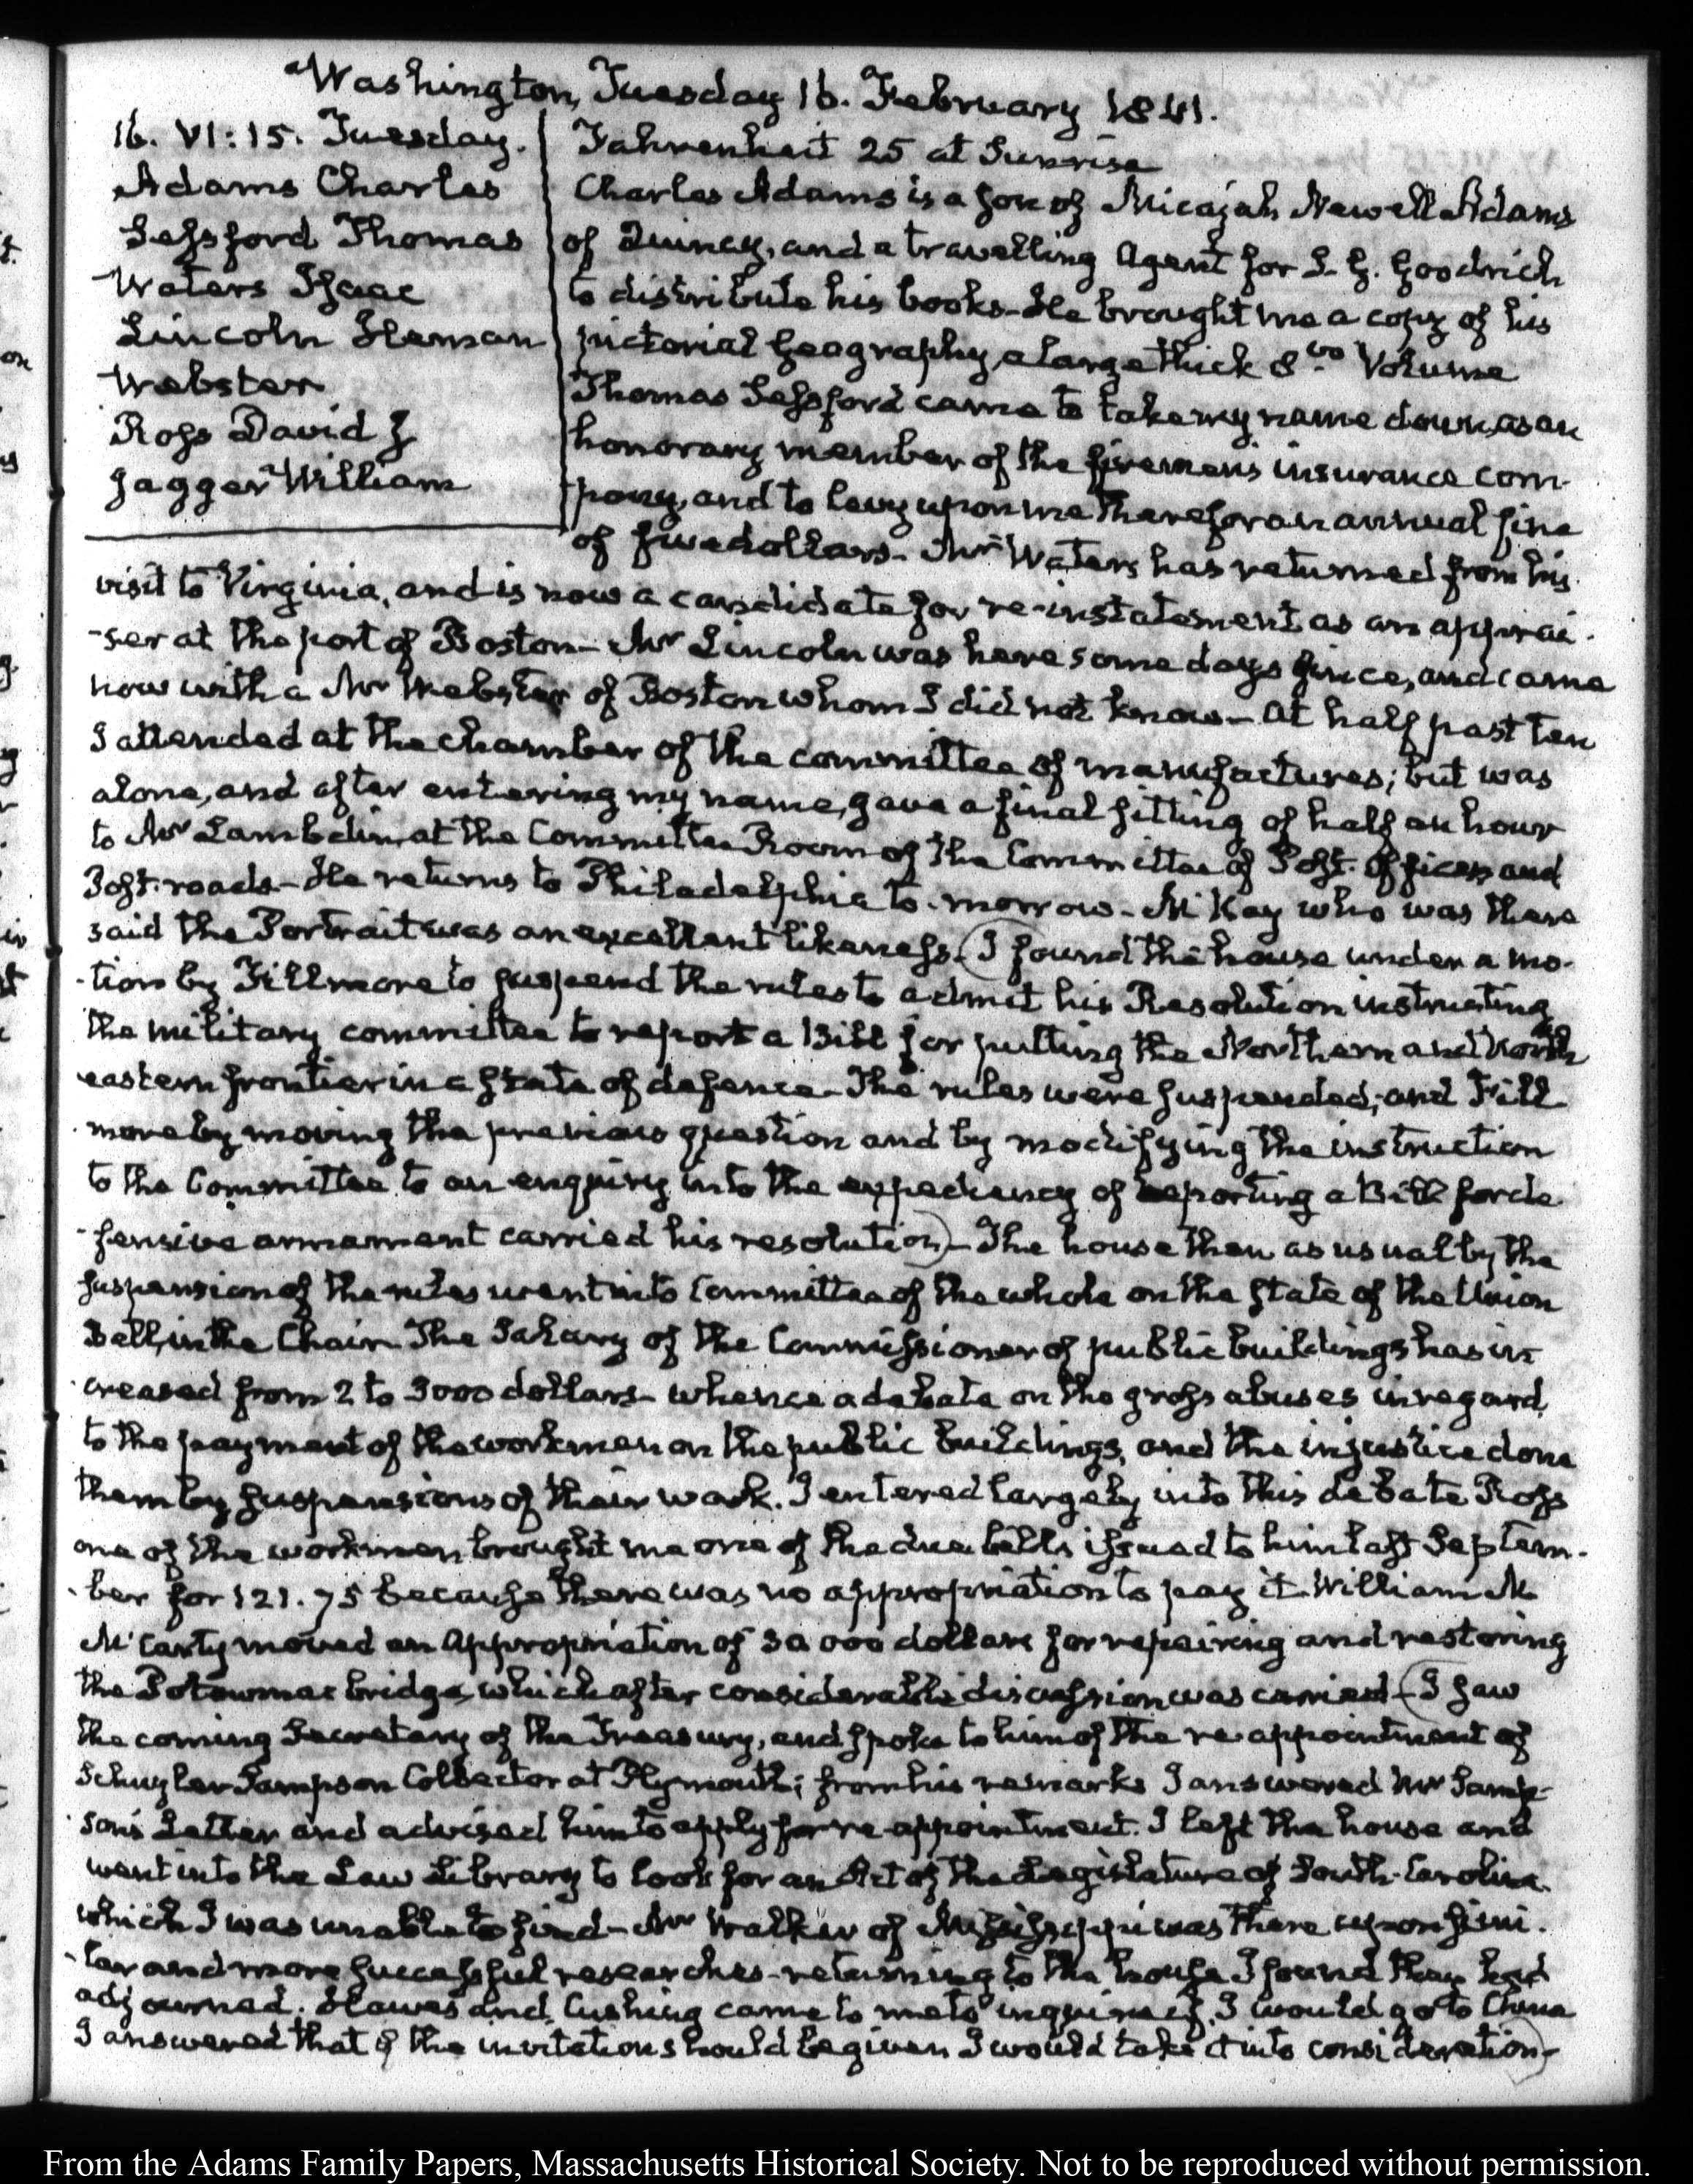 Washington, Tuesday 16. February 1841.
16. VI:15. Tuesday.
Adams Charles
Sessford Thomas
Waters Isaac
Lincoln Heman
Webster
Ross David J
Jagger William
Fahrenheit 25 at Sunrise
Charles Adams is a son of Micajah Newell Adams
of Quincy, and a travelling Agent for S. G. Goodrich
to distribute his books. He brought me a copy of his
pictorial Geography, a large thick 8.vo Volume
Thomas Sessford came to take my name down, as an
honorary member of the firemen's insurance com-
pany, and to levy upon me therefor an annual fine
of five dollars. Mr. Waters has returned from his
visit to Virginia, and is now a candidate for re-instatement as an apprai-
-ser at the port of Boston- Mr Lincoln was here some days since, and came
now with a Mr Webster of Boston whom I did not know- At half past ten
I attended at the chamber of the committee of manufactures; but was
alone, and after entering my name, gave a final sitting of half an hour
to Mr Lambdin, at the Committee Room of the Committee of Post-offices and
Post-roads- He returns to Philadelphia to-morrow- McKay who was there
said the Portrait was an excellent likeness. (I found the house under a mo-
-tion by Fillmore to suspend the rules to admit his Resolution instructing
the military committee to report a Bill for putting the Northern and North
eastern frontier in a state of defence- The rules were suspended; and Fill-
more by moving the previous question and by modifying the instruction
to the Committee to an enquiry into the expediency of reporting a Bill for de-
-fensive armament carried his resolution)- The house then as usual by the
suspension of the rules went into Committee of the whole on the state of the Union
Bell, in the Chair. The Salary of the Commissioner of public buildings has in-
creased from 2 to 3000 dollars- whence a debate on the gross abuses in regard
to the payment of the workmen on the public buildings, and the injustice done
them by suspensions of their work. I entered largely into this debate Ross
one of the workmen brought me one of the due bills issued to him last Septem-
-ber for 121.75 because there was no appropriation to pay it. William M
McCarty moved an Appropriation of 30 000 dollars for repairing and restoring
the Potowmac bridge, which after considerable discussion was carried- (I saw
the coming Secretary of the Treasury, and spoke to him of the re-appointment of
Schuyler Sampson Collector at Plymouth; from his remarks I answered Mr Samp-
son's Letter and advised him to apply for re-appointment. I left the house and
went into the Law Library to look for an Act of the Legislature of South-Carolina
which I was unable to find- Mr Walker of Mississippi was there upon simi-
-lar and more successful researches- returning to the house I found they had
adjourned. Hawes and Cushing came to me to inquire if I would go to China
I answered that if the invitation should be given I would take it into consideration)-
From the Adams Family Papers, Massachusetts Historical Society. Not to be reproduced without permission.